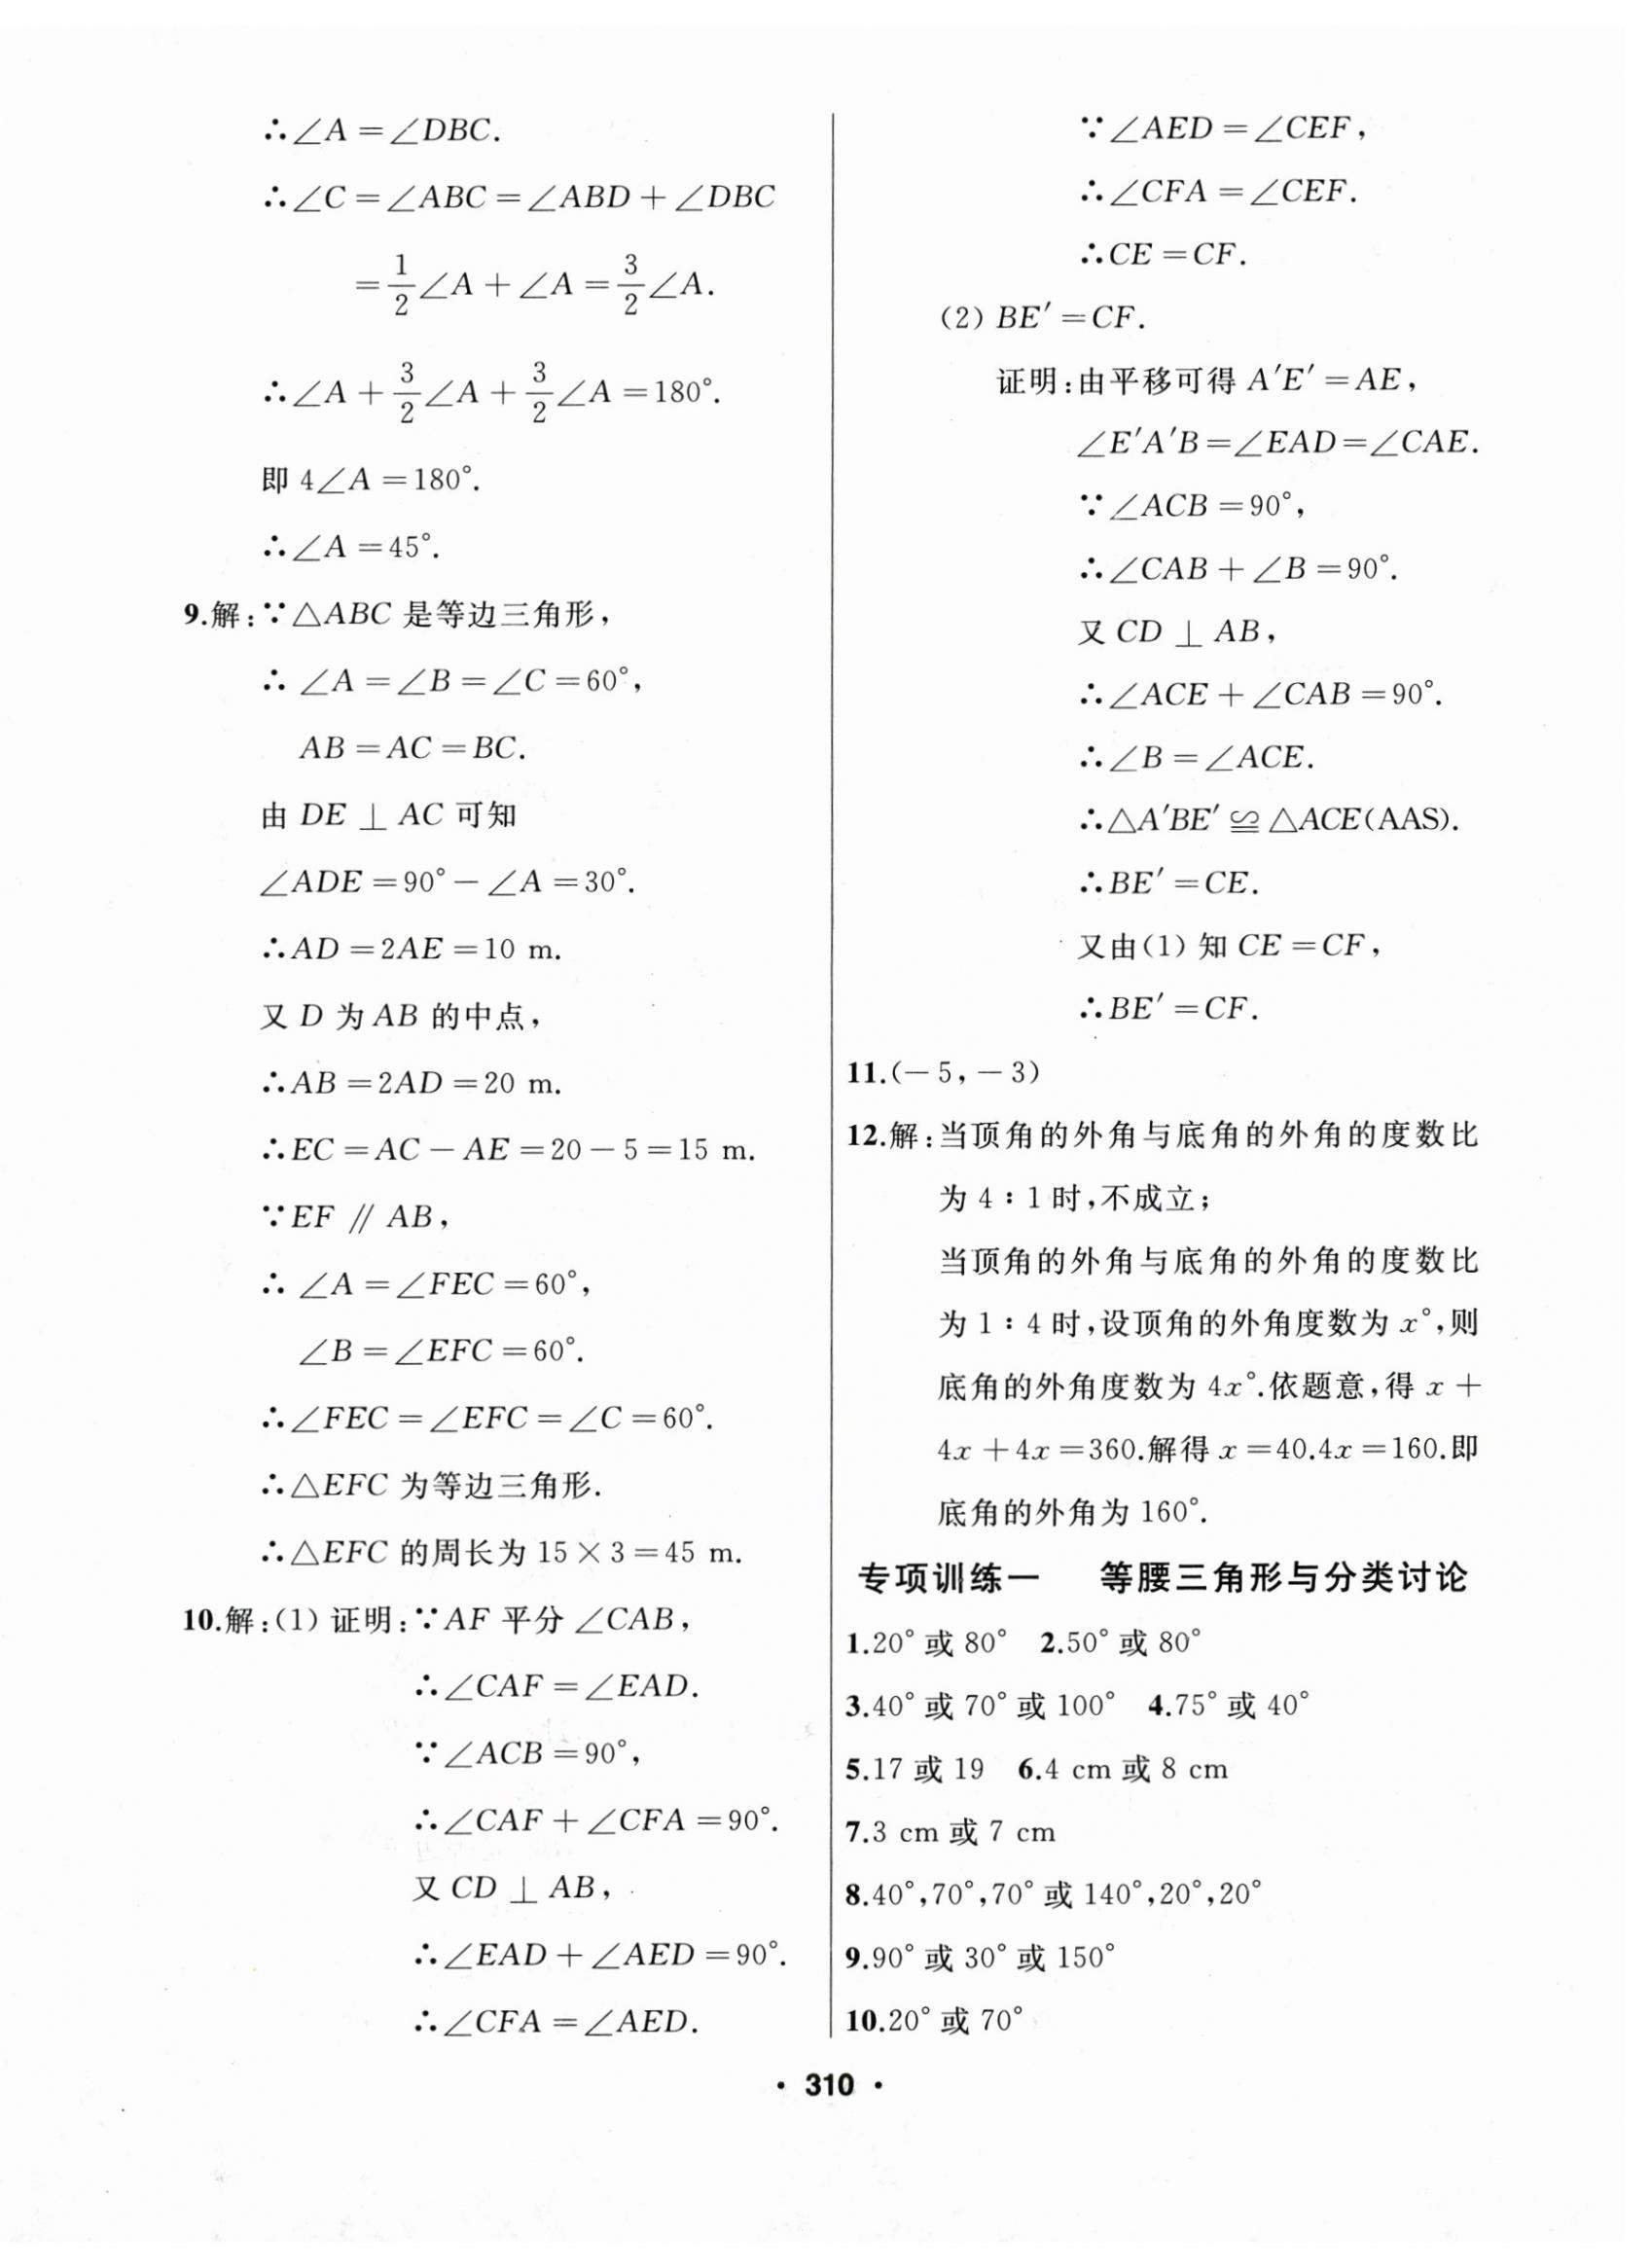 ∴∠A=∠DBC.
∴∠C=∠ABC=∠ABD+∠DBC
=1/2∠A+∠A=3/2∠A.
∴∠A+3/2∠A+3/2∠A=180°.
即 4∠A=180°.
∴∠A=45°.
9.解:∵△ABC 是等边三角形,
∴ ∠A=∠B=∠C=60°,
AB=AC=BC.
由 DE⊥AC 可知
∠ADE=90°-∠A=30°.
∴AD=2AE=10 m.
又 D 为 AB 的中点,
∴AB=2AD=20 m.
∴EC=AC-AE=20-5=15 m.
∵EF∥AB,
∴ ∠A=∠FEC=60°,
∠B=∠EFC=60°.
∴∠FEC=∠EFC=∠C=60°.
∴△EFC 为等边三角形.
∴△EFC 的周长为 15×3=45 m.
10.解:(1) 证明:∵AF 平分 ∠CAB,
∴∠CAF=∠EAD.
∵∠ACB=90°,
∴∠CAF+∠CFA=90°.
又 CD⊥AB,
∴∠EAD+∠AED=90°.
∴∠CFA=∠AED.
∵∠AED=∠CEF,
∴∠CFA=∠CEF.
∴CE=CF.
(2) BE′=CF.
证明:由平移可得 A′E′=AE,
∠E′A′B=∠EAD=∠CAE.
∵∠ACB=90°,
∴∠CAB+∠B=90°.
又 CD⊥AB,
∴∠ACE+∠CAB=90°.
∴∠B=∠ACE.
∴△A′BE′≌△ACE(AAS).
∴BE′=CE.
又由(1) 知 CE=CF,
∴BE′=CF.
11.(-5,-3)
12.解:当顶角的外角与底角的外角的度数比
为 4∶1 时,不成立;
当顶角的外角与底角的外角的度数比
为 1∶4 时,设顶角的外角度数为 x°,则
底角的外角度数为 4x°.依题意,得 x+
4x+4x=360.解得 x=40.4x=160.即
底角的外角为 160°.
专项训练一 等腰三角形与分类讨论
1.20° 或 80° 2.50° 或 80°
3.40° 或 70° 或 100° 4.75° 或 40°
5.17 或 19 6.4 cm 或 8 cm
7.3 cm 或 7 cm
8.40°,70°,70° 或 140°,20°,20°
9.90° 或 30° 或 150°
10.20° 或 70°
· 310 ·